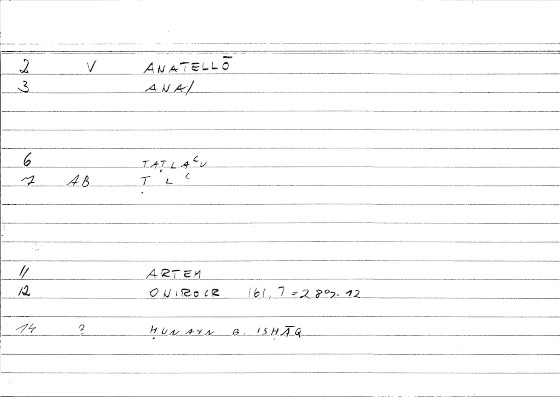 2 V ANATELLŌ
3 ANA/
6 TAṬLAʿU
7 AB Ṭ L ʿ
11 ARTEM
12 ONIROCR 161,7 = 289.12
14 ? ḤUNAYN B. ISḤĀQ